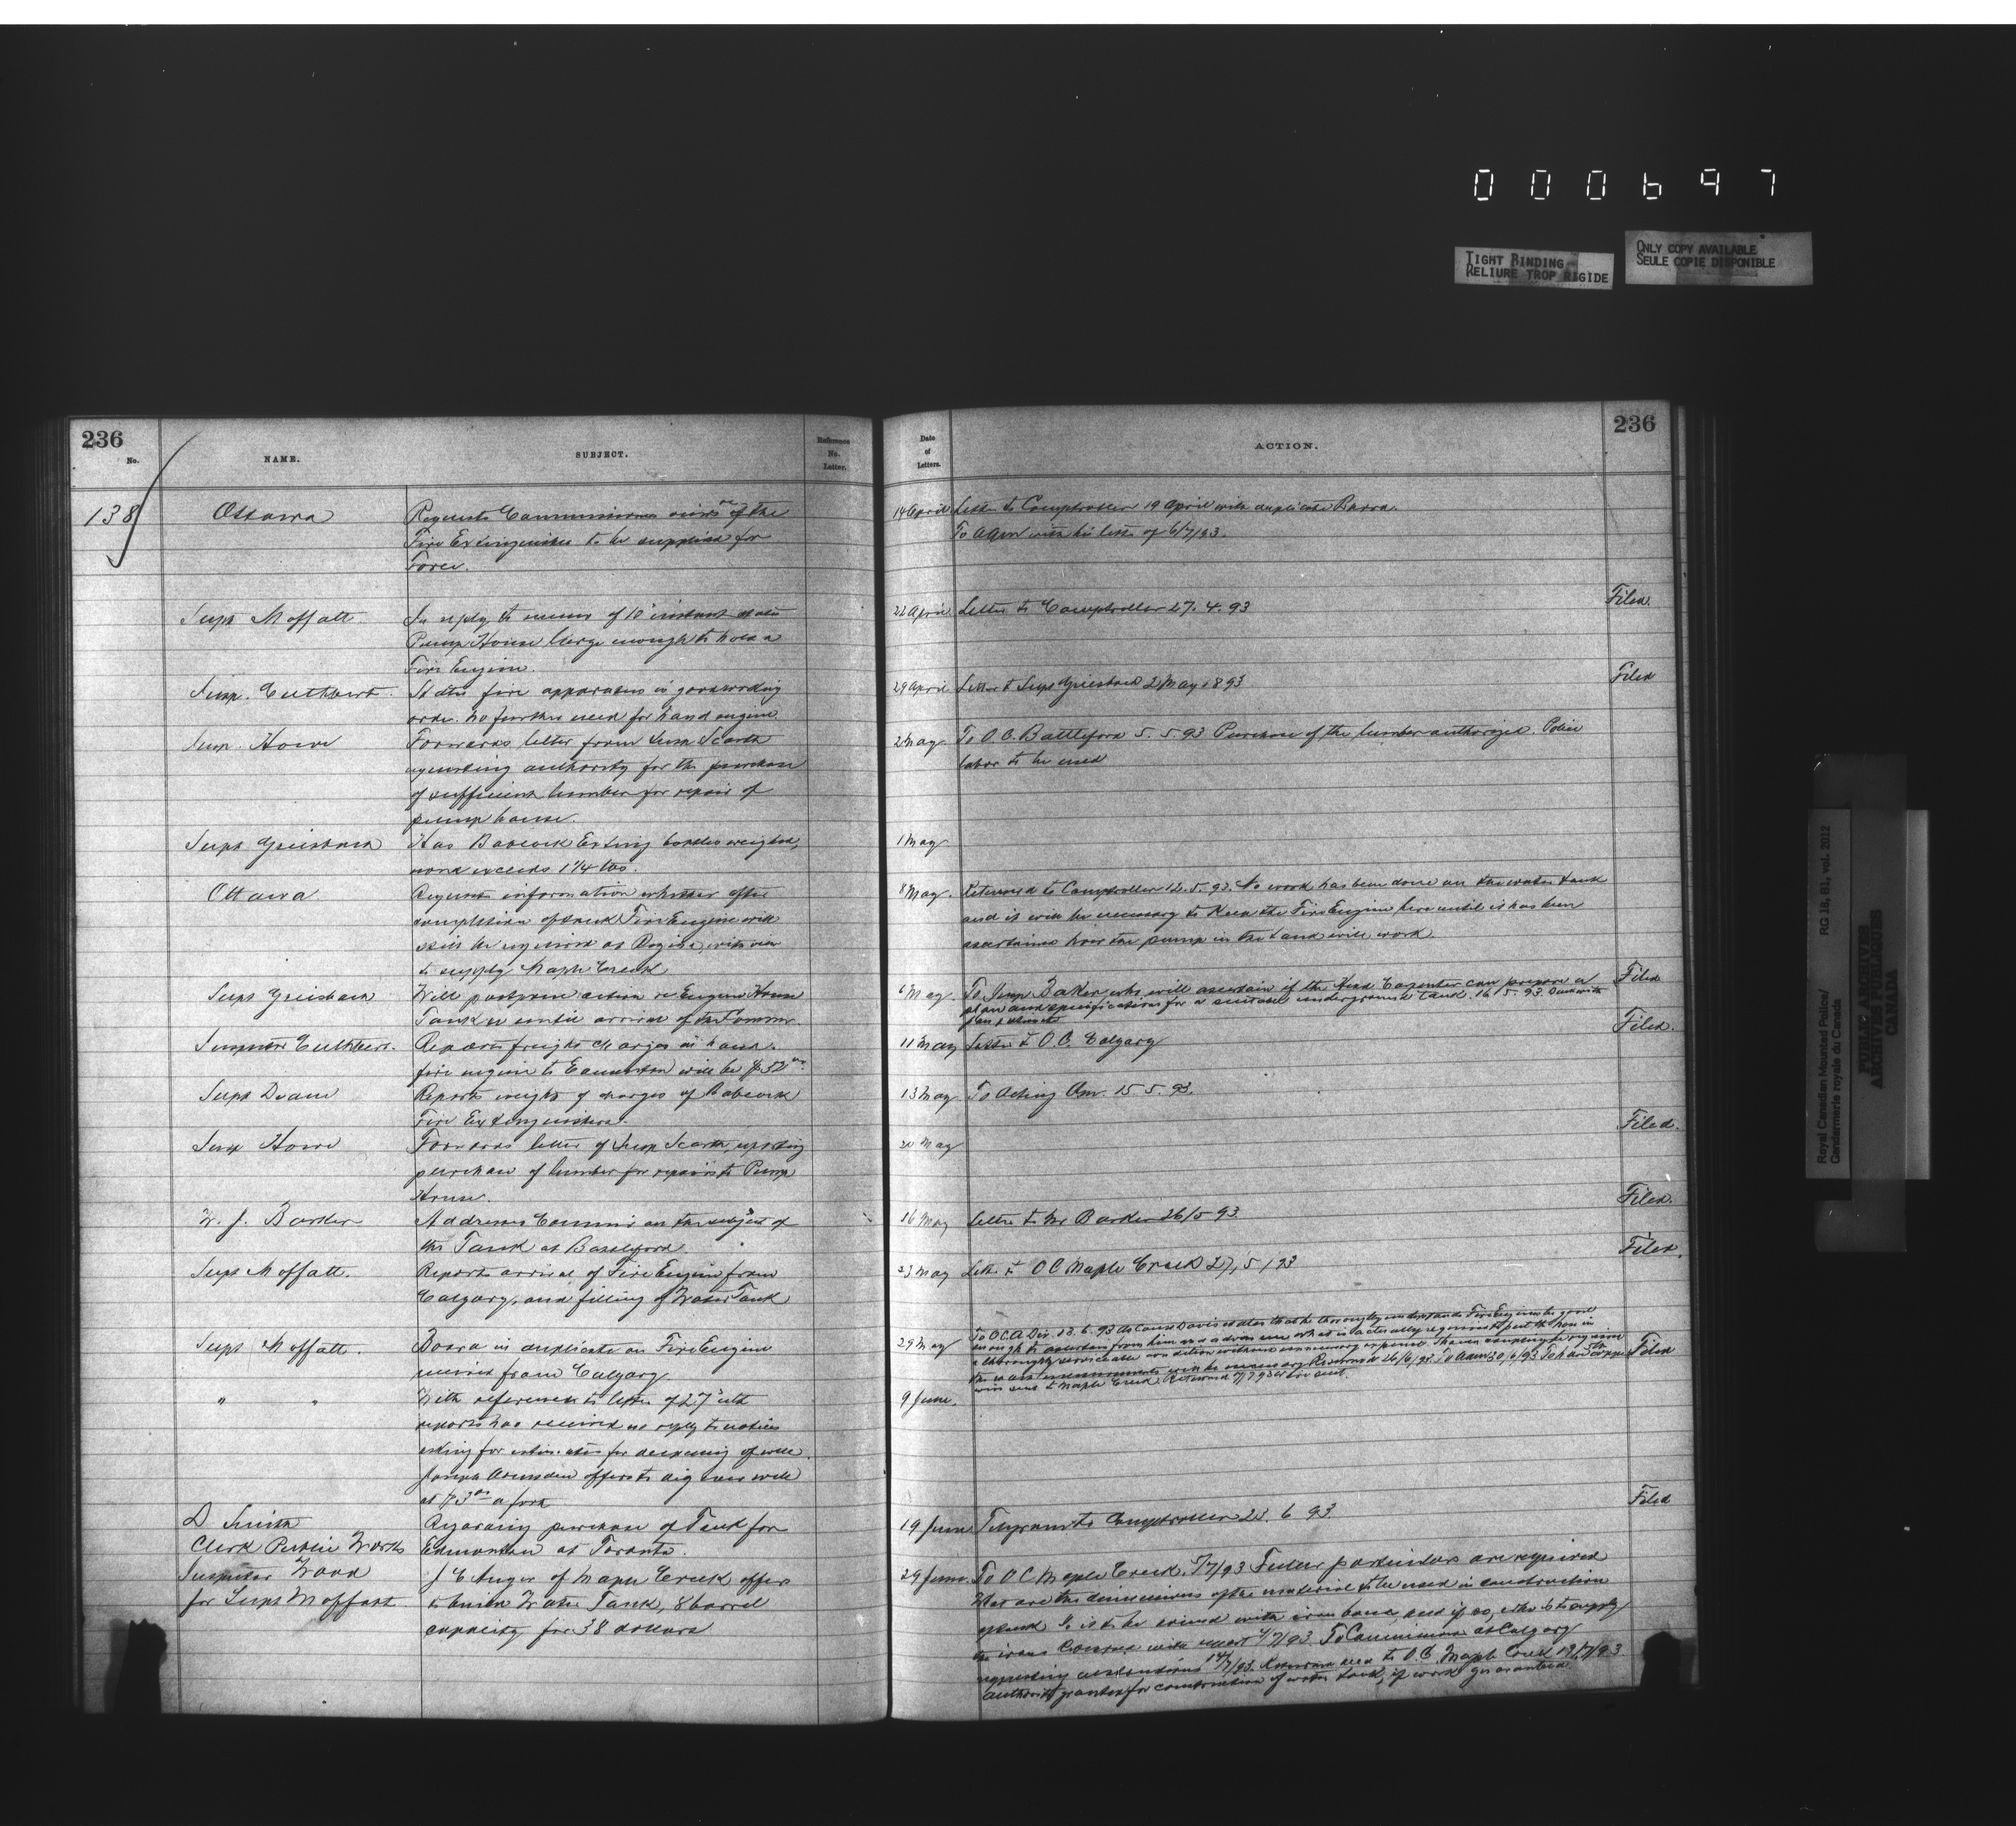 000697
TIGHT BINDING
RELIURE TROP RIGIDE
ONLY COPY AVAILABLE
SEULE COPIE DISPONIBLE
236
No.
NAME.
SUBJECT.
Reference
No.
Letter.
138
Ottawa
Requests Commissioners views re of the
Fire Extinguisher to be supplied for
Force.
Supt Moffatt
In reply to memo of 10 instant states
Pump House large enough to hold a
Fire Engine.
Insp. Cuthbert
States fire apparatus in good working
order. No further need for hand engine
Insp. Howe
Forwards letter from Insp Scarth
requesting authority for the purchase
of sufficient lumber for repair of
pump house.
Supt Griesbach
Has Babcock Exting bottles weighed,
none exceeds 1 1/4 lbs.
Ottawa
Request information whether after
completion of tank Fire Engine will
still be required at Regina, with view
to supply Maple Creek
Supt Griesbach
Will postpone action re Engine House
Tank &c until arrival of the Commr.
Inspector Cuthbert.
Reports freight charges on hand
fire engine to Edmonton will be $52
Supt Deane
Reports weight of charges of Babcock
Fire Extinguishers.
Insp Howe
Forwards letter of Insp Scarth, reporting
purchase of lumber for repairs to Pump
House.
W. J. Barker
Addresses Commr on the subject of
the Tank at Battleford.
Supt Moffatt.
Reports arrival of Fire Engine from
Calgary, and filling of Water Tank
Supt Moffatt.
Board in duplicate on Fire Engine
received from Calgary
" "
With reference to letter of 27th ult
reports has received no reply to notices
asking for estimates for deepening of well.
Joseph offers to dig well
at $3 00 a foot
D Smith
Clerk Public Works
Regarding purchase of Tank for
Edmonton at Toronto.
Inspector Wood
for Supt Moffatt
J E Auger of Maple Creek offers
to build Water Tank, 8 barrel
capacity for 38 dollars
236
Date
of
Letters.
ACTION.
14 April Letter to Comptroller 19 April with duplicate Board.
To with his letter of 6/7/93.
22 April Letter to Comptroller 27. 4. 93
Filed.
29 April Letter to Supt Griesbach 2 May 1893
Filed
2 May To O.C. Battleford 5. 5 93 Purchase of the lumber authorized. Police
labor to be used
1 May
8 May. Returned to Comptroller 12. 5. 93. No work has been done on the water tank
and it will be necessary to keep the Fire Engine here until it has been
ascertained how the pump in the tank will work
6 May To Insp Baker who will ascertain if the Head Carpenter can prepare a
plan and specifications for a suitable underground tank. 16/5.93. Back with
plan
Filed
11 May Letter to O.C. Calgary
Filed.
13 May To Acting Qmr. 15. 5. 93.
20 May
Filed.
16 May Letter to Mr Barker 26/5 93
Filed.
23 May Letter to O C Maple Creek 27/5/93
Filed.
29 May To O C A Div. 13. 6. 93 As Const Davis states that he thoroughly understands Fire Engines be good
enough to ascertain from him and advise me what is actually required to put the hose in
a thoroughly serviceable condition without unnecessary expense.
Returned 26/6/93 To Qmr 30/6/93
sent to Maple Creek. Returned
Filed
9 June.
19 June Telegram to Comptroller 23. 6 93
Filed
29 June. To O C Maple Creek. 1/7/93 Fuller particulars are required
What are the dimensions of the material to be used in construction
of tank Is it to be bound with iron bands and if so, who is to supply
the irons To Commissioner at Calgary
14/7/93. to O.C. Maple Creek 19/7/93.
authority granted for construction of water tank, if work guaranteed
Royal Canadian Mounted Police/
Gendarmerie royale du Canada
RG 18, B1, vol. 2012
PUBLIC ARCHIVES
ARCHIVES PUBLIQUES
CANADA